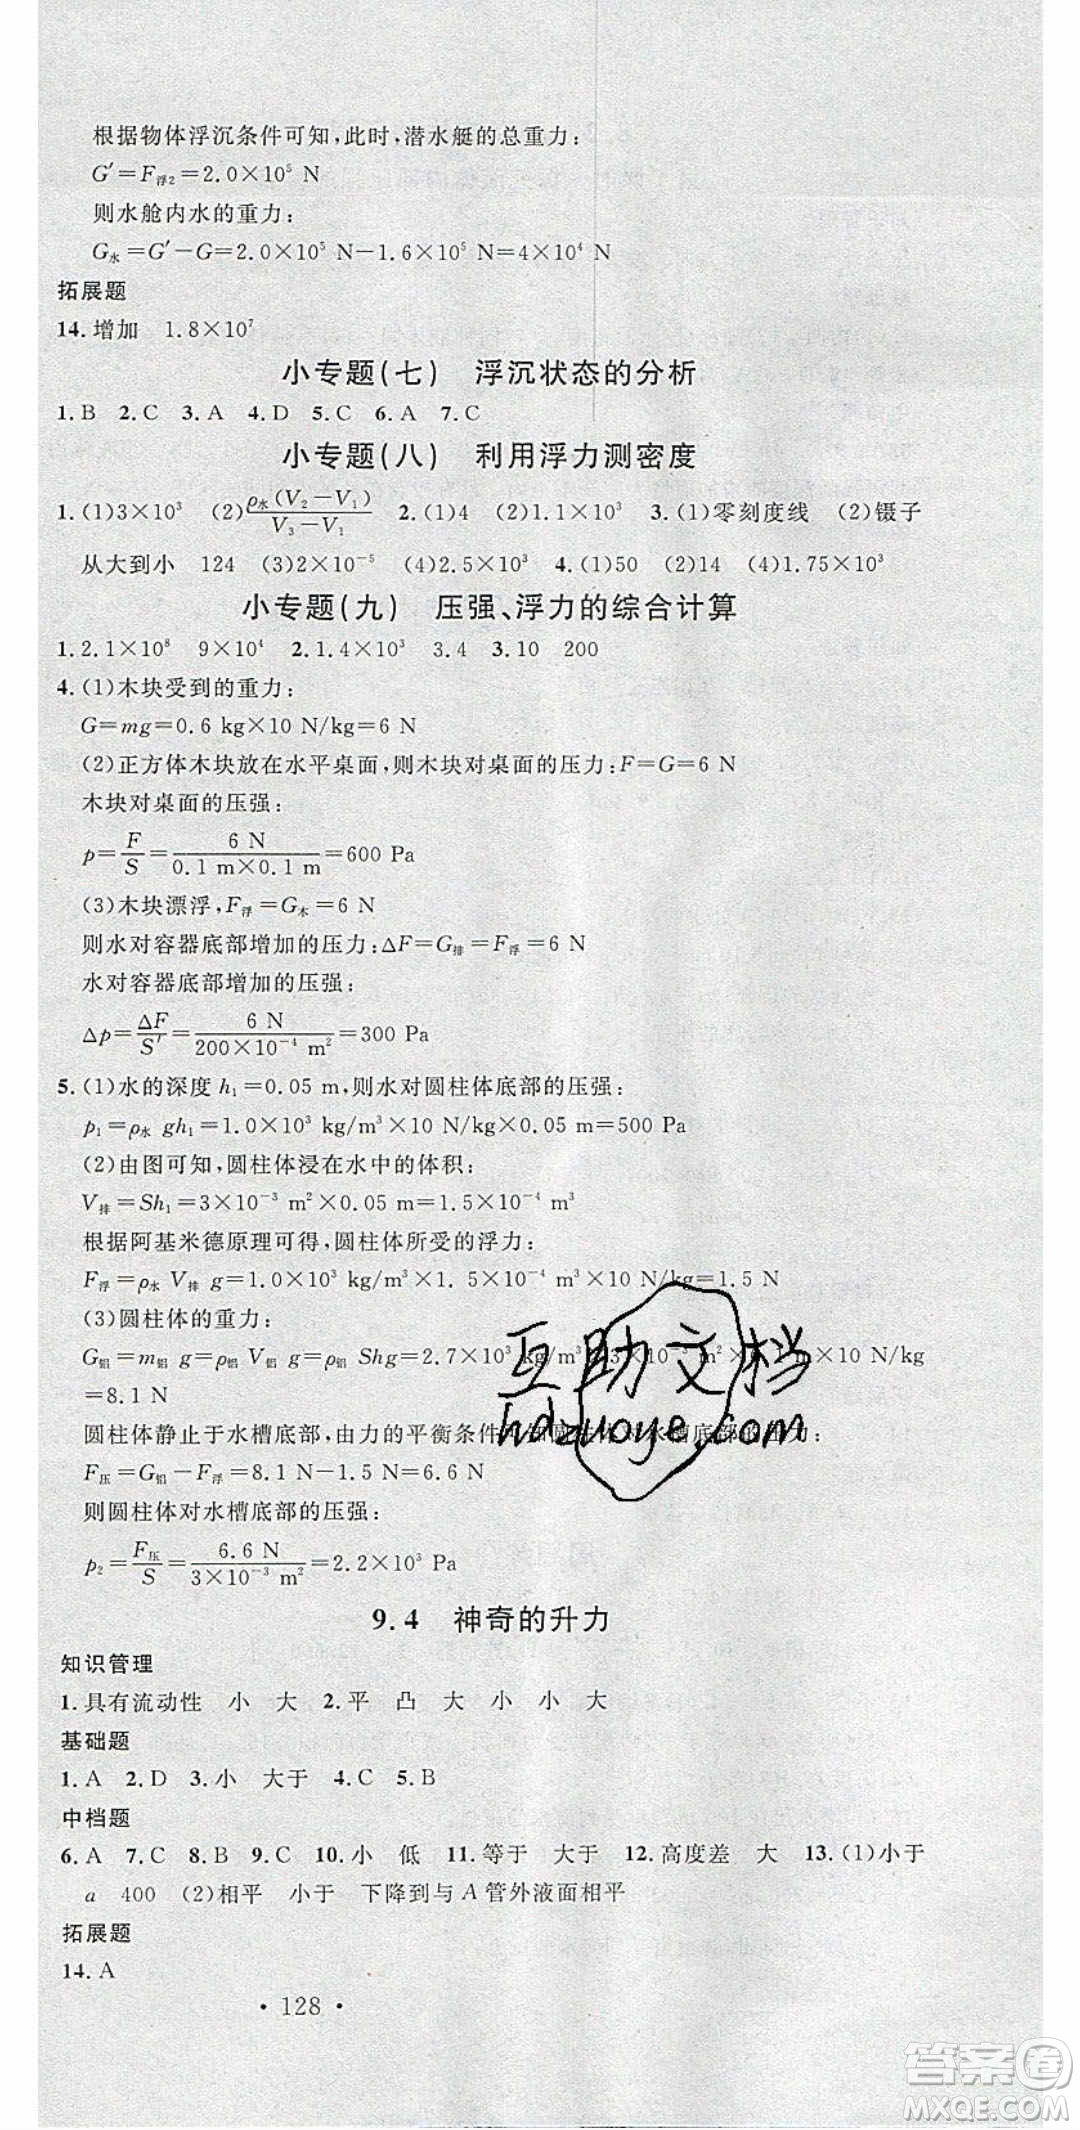 根据物体浮沉条件可知,此时,潜水艇的总重力:
G′=F浮2=2.0×10⁵ N
则水舱内水的重力:
G水=G′-G=2.0×10⁵ N-1.6×10⁵ N=4×10⁴ N
拓展题
14.增加 1.8×10⁷
小专题(七) 浮沉状态的分析
1.B 2.C 3.A 4.D 5.C 6.A 7.C
小专题(八) 利用浮力测密度
1.(1)3×10³ (2)ρ水(V₂-V₁)/(V₃-V₁) 2.(1)4 (2)1.1×10³ 3.(1)零刻度线 (2)镊子
从大到小 124 (3)2×10⁻⁵ (4)2.5×10³ 4.(1)50 (2)14 (4)1.75×10³
小专题(九) 压强、浮力的综合计算
1.2.1×10⁸ 9×10⁴ 2.1.4×10³ 3.4 3.10 200
4.(1)木块受到的重力:
G=mg=0.6 kg×10 N/kg=6 N
(2)正方体木块放在水平桌面,则木块对桌面的压力:F=G=6 N
木块对桌面的压强:
p=F/S=6 N/(0.1 m×0.1 m)=600 Pa
(3)木块漂浮,F浮=G木=6 N
则水对容器底部增加的压力:ΔF=G排=F浮=6 N
水对容器底部增加的压强:
Δp=ΔF/S′=6 N/(200×10⁻⁴ m²)=300 Pa
5.(1)水的深度 h₁=0.05 m,则水对圆柱体底部的压强:
p₁=ρ水 gh₁=1.0×10³ kg/m³×10 N/kg×0.05 m=500 Pa
(2)由图可知,圆柱体浸在水中的体积:
V排=Sh₁=3×10⁻³ m²×0.05 m=1.5×10⁻⁴ m³
根据阿基米德原理可得,圆柱体所受的浮力:
F浮=ρ水 V排 g=1.0×10³ kg/m³×1. 5×10⁻⁴ m³×10 N/kg=1.5 N
(3)圆柱体的重力:
G铝=m铝 g=ρ铝 V铝 g=ρ铝 Shg=2.7×10³ kg/m³×3×10⁻³ m²×0.1 m×10 N/kg
=8.1 N
圆柱体静止于水槽底部,由力的平衡条件可知圆柱体对水槽底部的压力:
F压=G铝-F浮=8.1 N-1.5 N=6.6 N
则圆柱体对水槽底部的压强:
p₂=F压/S=6.6 N/(3×10⁻³ m²)=2.2×10³ Pa
互助文档
hdzuoye.com
9.4 神奇的升力
知识管理
1.具有流动性 小 大 2.平 凸 大 小 小 大
基础题
1.A 2.D 3.小 大于 4.C 5.B
中档题
6.A 7.C 8.B 9.C 10.小 低 11.等于 大于 12.高度差 大 13.(1)小于
a 400 (2)相平 小于 下降到与 A 管外液面相平
拓展题
14.A
• 128 •
答案圈
MXQE.COM